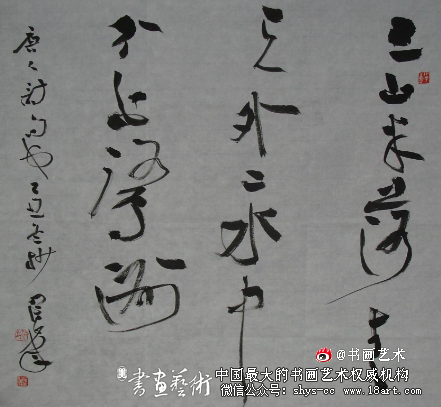 三山半落青
天外二水中
分白鹭洲
唐人诗句
@书画艺术
書畫藝術
中国最大的书画艺术权威机构
微信公众号：shys-cc www.18art.com